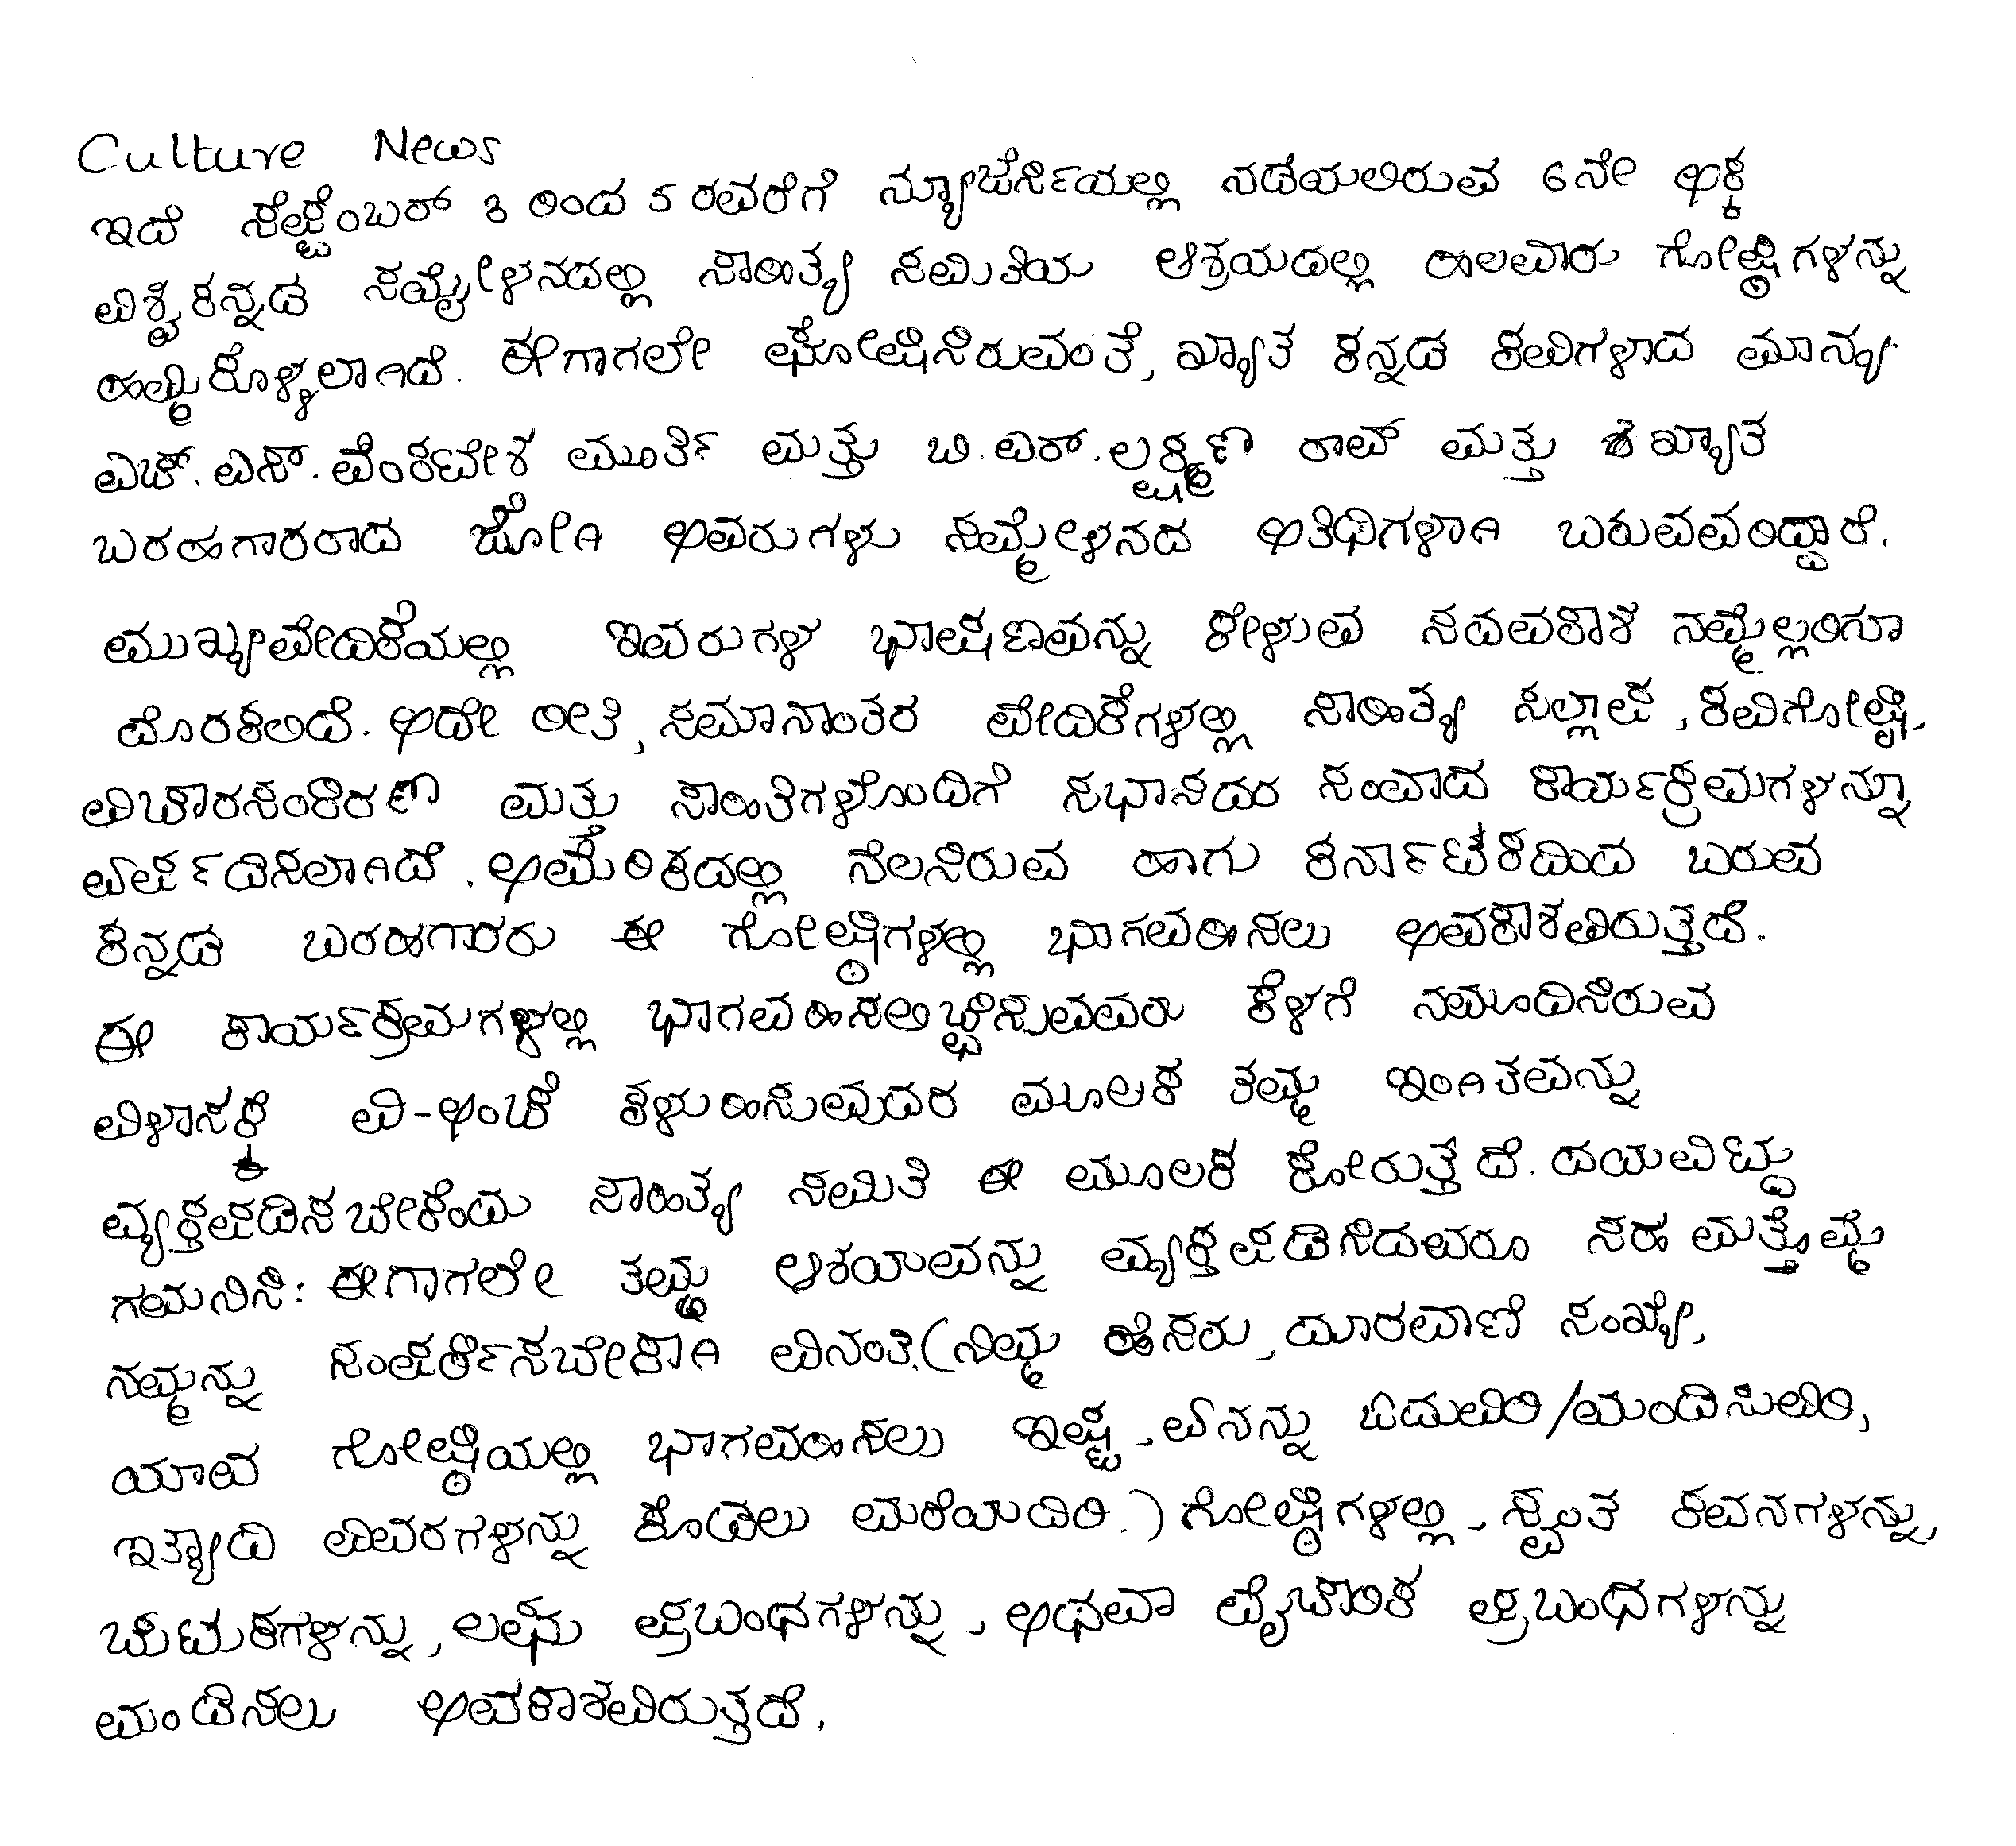 Culture News
ಇದೆ ಸೆಪ್ಟೆಂಬರ್ 3 ರಿಂದ 5 ರವರೆಗೆ ನ್ಯೂಜೆರ್ಸಿಯಲ್ಲಿ ನಡೆಯಲಿರುವ 6ನೇ ಅಕ್ಕ
ವಿಶ್ವಕನ್ನಡ ಸಮ್ಮೇಳನದಲ್ಲಿ ಸಾಹಿತ್ಯ ಸಮಿತಿಯ ಆಶ್ರಯದಲ್ಲಿ ಹಲವಾರು ಗೋಷ್ಠಿಗಳನ್ನು
ಹಮ್ಮಿಕೊಳ್ಳಲಾಗಿದೆ. ಈಗಾಗಲೇ ಘೋಷಿಸಿರುವಂತೆ, ಖ್ಯಾತ ಕನ್ನಡ ಕವಿಗಳಾದ ಮಾನ್ಯ
ಎಚ್.ಎಸ್.ವೆಂಕಟೇಶ ಮೂರ್ತಿ ಮತ್ತು ಬಿ.ಎರ್.ಲಕ್ಷ್ಮಣ ರಾವ್ ಮತ್ತು ಖ್ಯಾತ
ಬರಹಗಾರರಾದ ಜೋಗಿ ಅವರುಗಳು ಸಮ್ಮೇಳನದ ಅತಿಥಿಗಳಾಗಿ ಬರುವವರಿದ್ದಾರೆ.
ಮುಖ್ಯವೇದಿಕೆಯಲ್ಲಿ ಇವರುಗಳ ಭಾಷಣವನ್ನು ಕೇಳುವ ಸದವಕಾಶ ನಮ್ಮೆಲ್ಲರಿಗೂ
ದೊರಕಲಿದೆ. ಅದೇ ರೀತಿ, ಸಮಾನಾಂತರ ವೇದಿಕೆಗಳಲ್ಲಿ ಸಾಹಿತ್ಯ ಸಲ್ಲಾಪ, ಕವಿಗೋಷ್ಠಿ,
ವಿಚಾರಸಂಕಿರಣ ಮತ್ತು ಸಾಹಿತಿಗಳೊಂದಿಗೆ ಸಭಾಸದರ ಸಂವಾದ ಕಾರ್ಯಕ್ರಮಗಳನ್ನೂ
ಏರ್ಪಡಿಸಲಾಗಿದೆ. ಅಮೆರಿಕದಲ್ಲಿ ನೆಲಸಿರುವ ಹಾಗು ಕರ್ನಾಟಕದಿಂದ ಬರುವ
ಕನ್ನಡ ಬರಹಗಾರರು ಈ ಗೋಷ್ಠಿಗಳಲ್ಲಿ ಭಾಗವಹಿಸಲು ಅವಕಾಶವಿರುತ್ತದೆ.
ಈ ಕಾರ್ಯಕ್ರಮಗಳಲ್ಲಿ ಭಾಗವಹಿಸಲಿಚ್ಛಿಸುವವರು ಕೆಳಗೆ ನಮೂದಿಸಿರುವ
ವಿಳಾಸಕ್ಕೆ ವಿ-ಅಂಚೆ ಕಳುಹಿಸುವುದರ ಮೂಲಕ ತಮ್ಮ ಇಂಗಿತವನ್ನು
ವ್ಯಕ್ತಪಡಿಸಬೇಕೆಂದು ಸಾಹಿತ್ಯ ಸಮಿತಿ ಈ ಮೂಲಕ ಕೋರುತ್ತದೆ. ದಯವಿಟ್ಟು
ಗಮನಿಸಿ: ಈಗಾಗಲೇ ತಮ್ಮ ಆಶಯವನ್ನು ವ್ಯಕ್ತಪಡಿಸಿದವರೂ ಸಹ ಮತ್ತೊಮ್ಮೆ
ನಮ್ಮನ್ನು ಸಂಪರ್ಕಿಸಬೇಕಾಗಿ ವಿನಂತಿ.(ನಿಮ್ಮ ಹೆಸರು, ದೂರವಾಣಿ ಸಂಖ್ಯೆ,
ಯಾವ ಗೋಷ್ಠಿಯಲ್ಲಿ ಭಾಗವಹಿಸಲು ಇಷ್ಟ, ಏನನ್ನು ಓದುವಿರಿ/ಮಂಡಿಸುವಿರಿ,
ಇತ್ಯಾದಿ ವಿವರಗಳನ್ನು ಕೊಡಲು ಮರೆಯದಿರಿ.) ಗೋಷ್ಠಿಗಳಲ್ಲಿ, ಸ್ವಂತ ಕವನಗಳನ್ನು,
ಚುಟುಕಗಳನ್ನು, ಲಘು ಪ್ರಬಂಧಗಳನ್ನು, ಅಥವಾ ವೈಚಾರಿಕ ಪ್ರಬಂಧಗಳನ್ನು
ಮಂಡಿಸಲು ಅವಕಾಶವಿರುತ್ತದೆ.